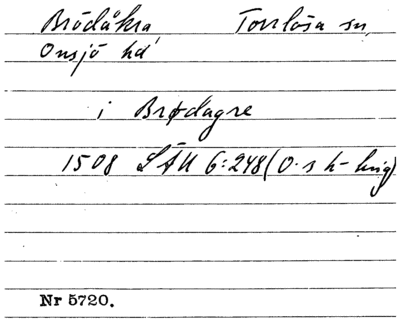 Brödåkra, Torrlösa sn,
Onsjö hd
i Brødagre
1508 LÄU 6:248 (O.s h-
Nr 5720.